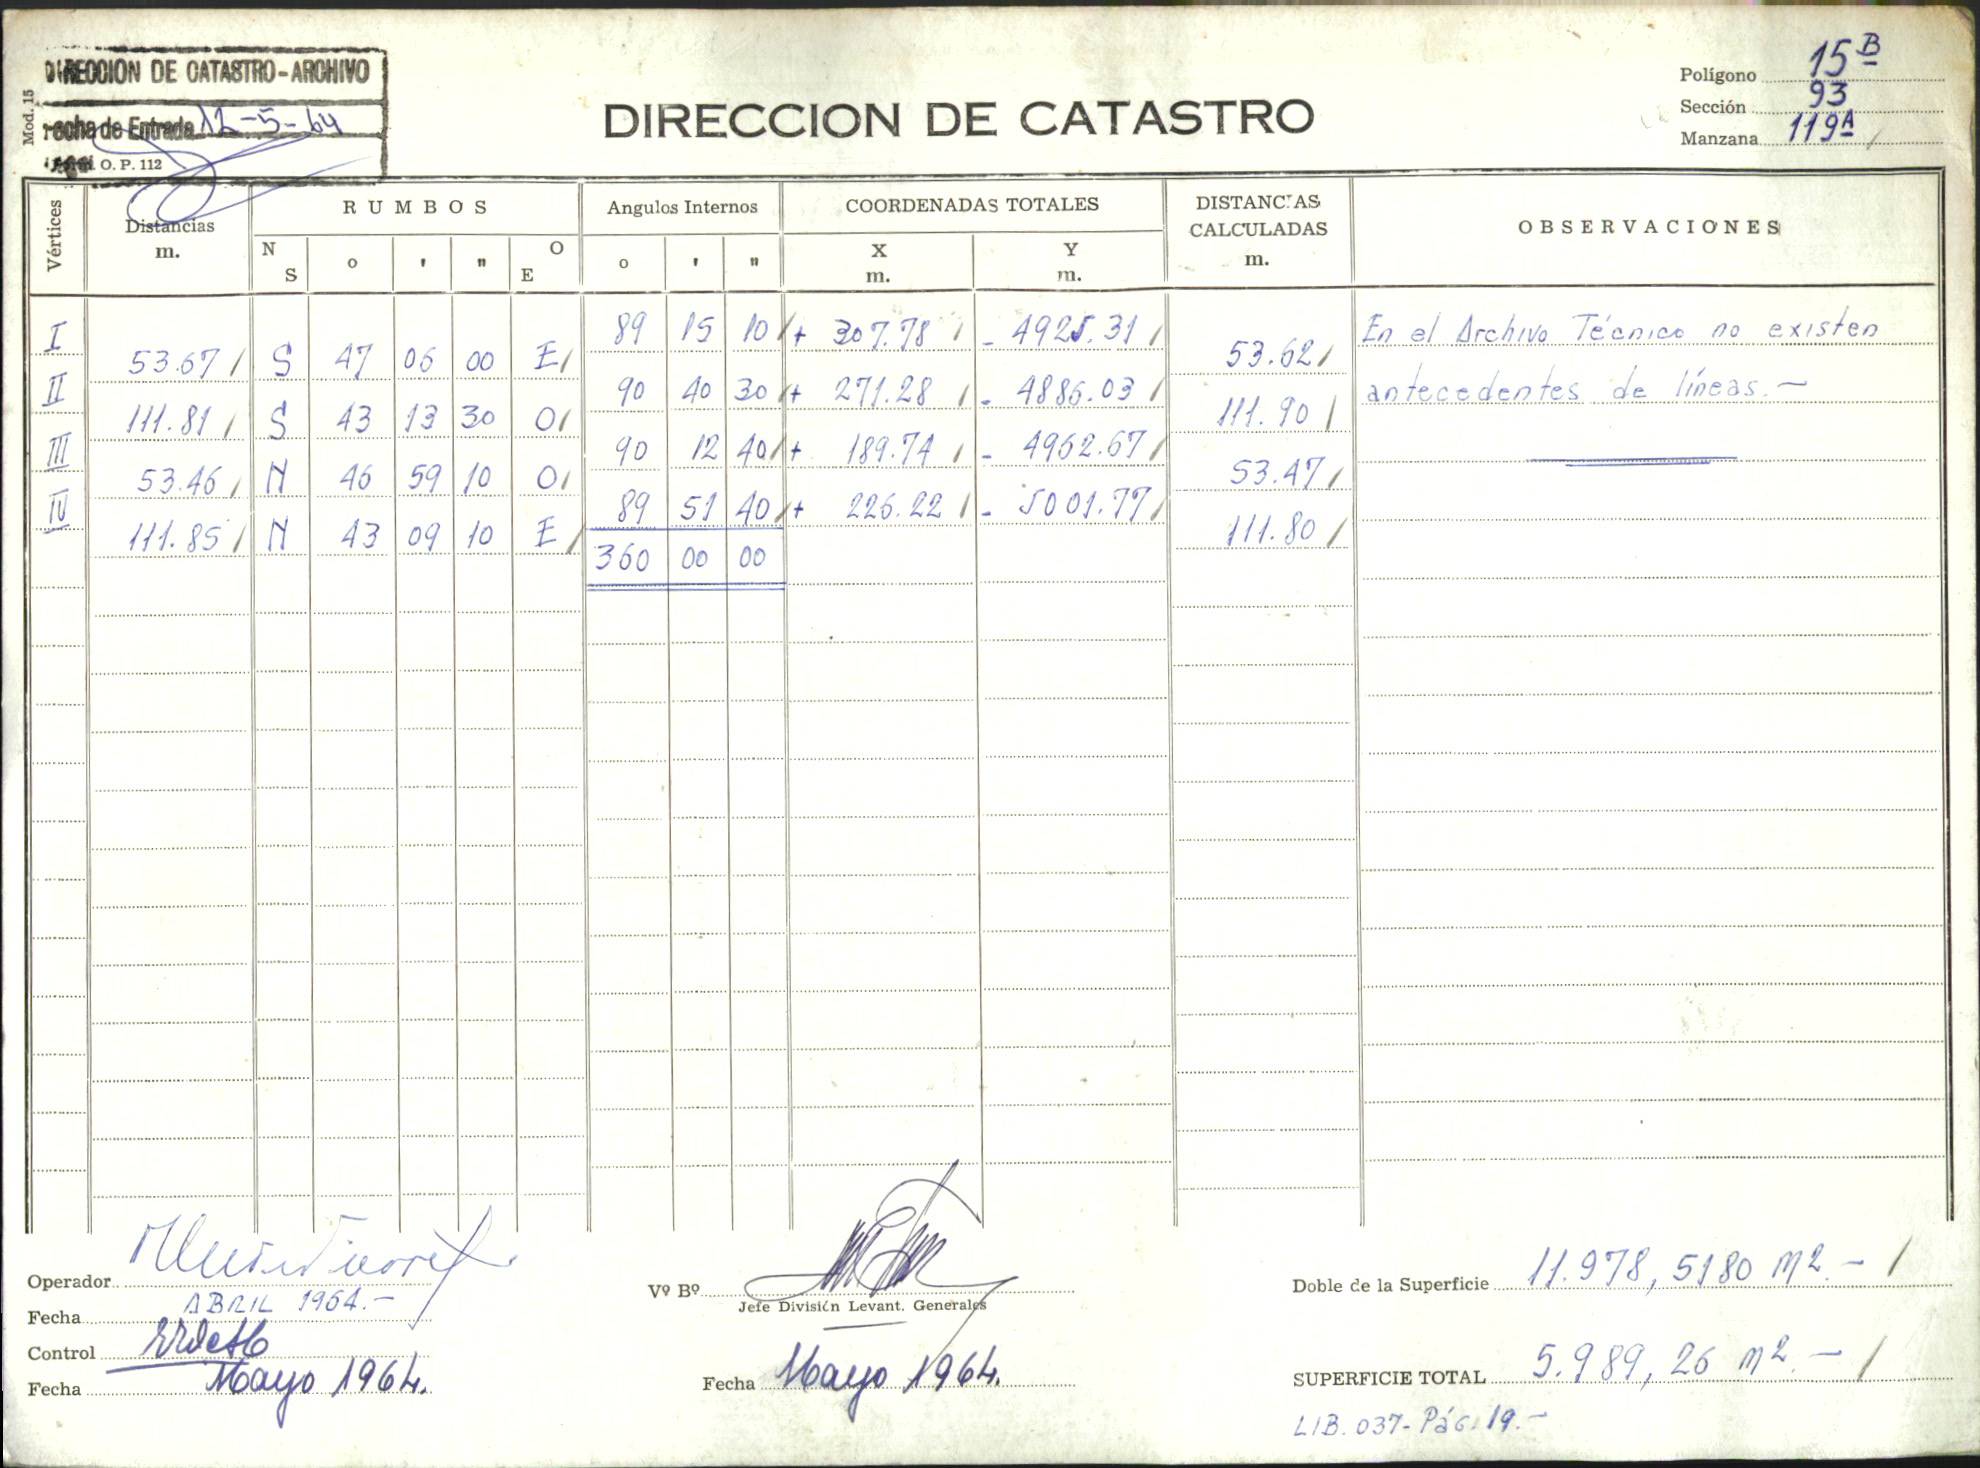 DIRECCION DE CATASTRO-ARCHIVO
Fecha de Entrada 12-5-64
O. P. 112
Mod. 15
DIRECCION DE CATASTRO
Polígono 15 B
Sección 93
Manzana 119 A
Vértices
Distancias
m.
RUMBOS
N
S
o
'
"
O
E
Angulos Internos
o
'
"
COORDENADAS TOTALES
X
m.
Y
m.
DISTANCIAS
CALCULADAS
m.
OBSERVACIONES
I 89 15 10 + 307.78 - 4925.31
53.67 S 47 06 00 E 53.62
II 90 40 30 + 271.28 - 4886.03
111.81 S 43 13 30 O 111.90
III 90 12 40 + 189.74 - 4962.67
53.46 N 46 59 10 O 53.47
IV 89 51 40 + 226.22 - 5001.77
111.85 N 43 09 10 E 111.80
360 00 00
En el Archivo Técnico no existen
antecedentes de líneas.-
Operador
Fecha ABRIL 1964.-
Control
Fecha Mayo 1964.
Vº Bº
Jefe División Levant. Generales
Fecha Mayo 1964.
Doble de la Superficie 11.978,5180 m2.-
SUPERFICIE TOTAL 5.989,26 m2.-
LIB. 037- Pág. 19.-